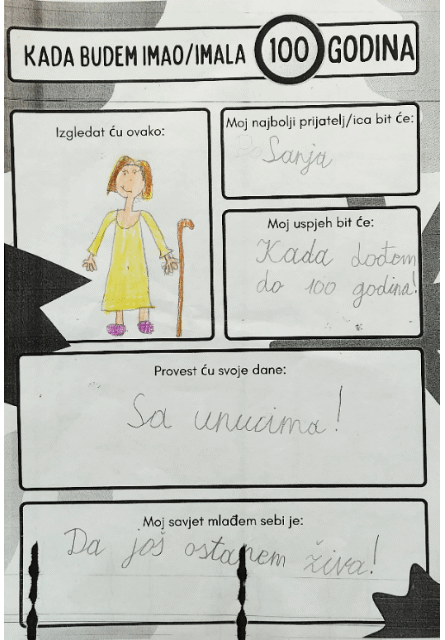 KADA BUDEM IMAO/IMALA 100 GODINA
Izgledat ću ovako:
Moj najbolji prijatelj/ica bit će:
Sanja
Moj uspjeh bit će:
Kada dođom
do 100 godina!
Provest ću svoje dane:
Sa unucima!
Moj savjet mlađem sebi je:
Da još ostanem živa!